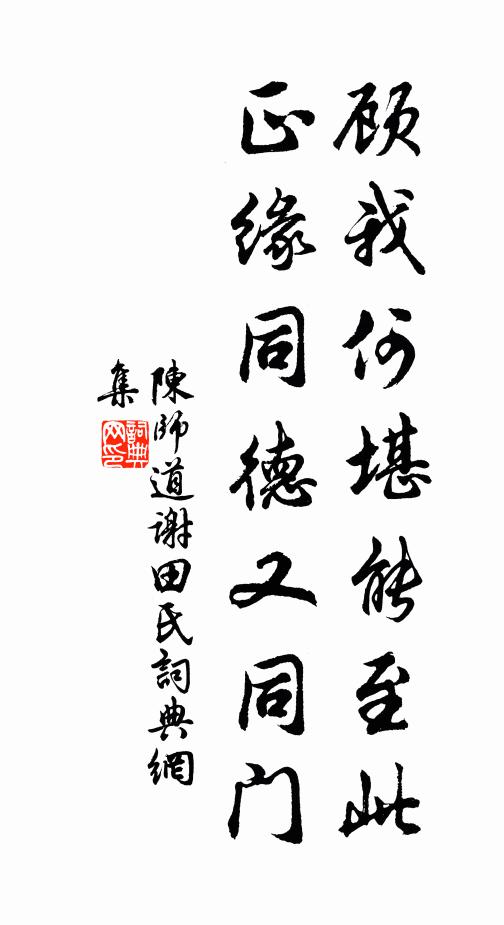 顾我何堪能至此
正缘同德又同门
陳师道謝田氏詞典網
集
詞典
网印